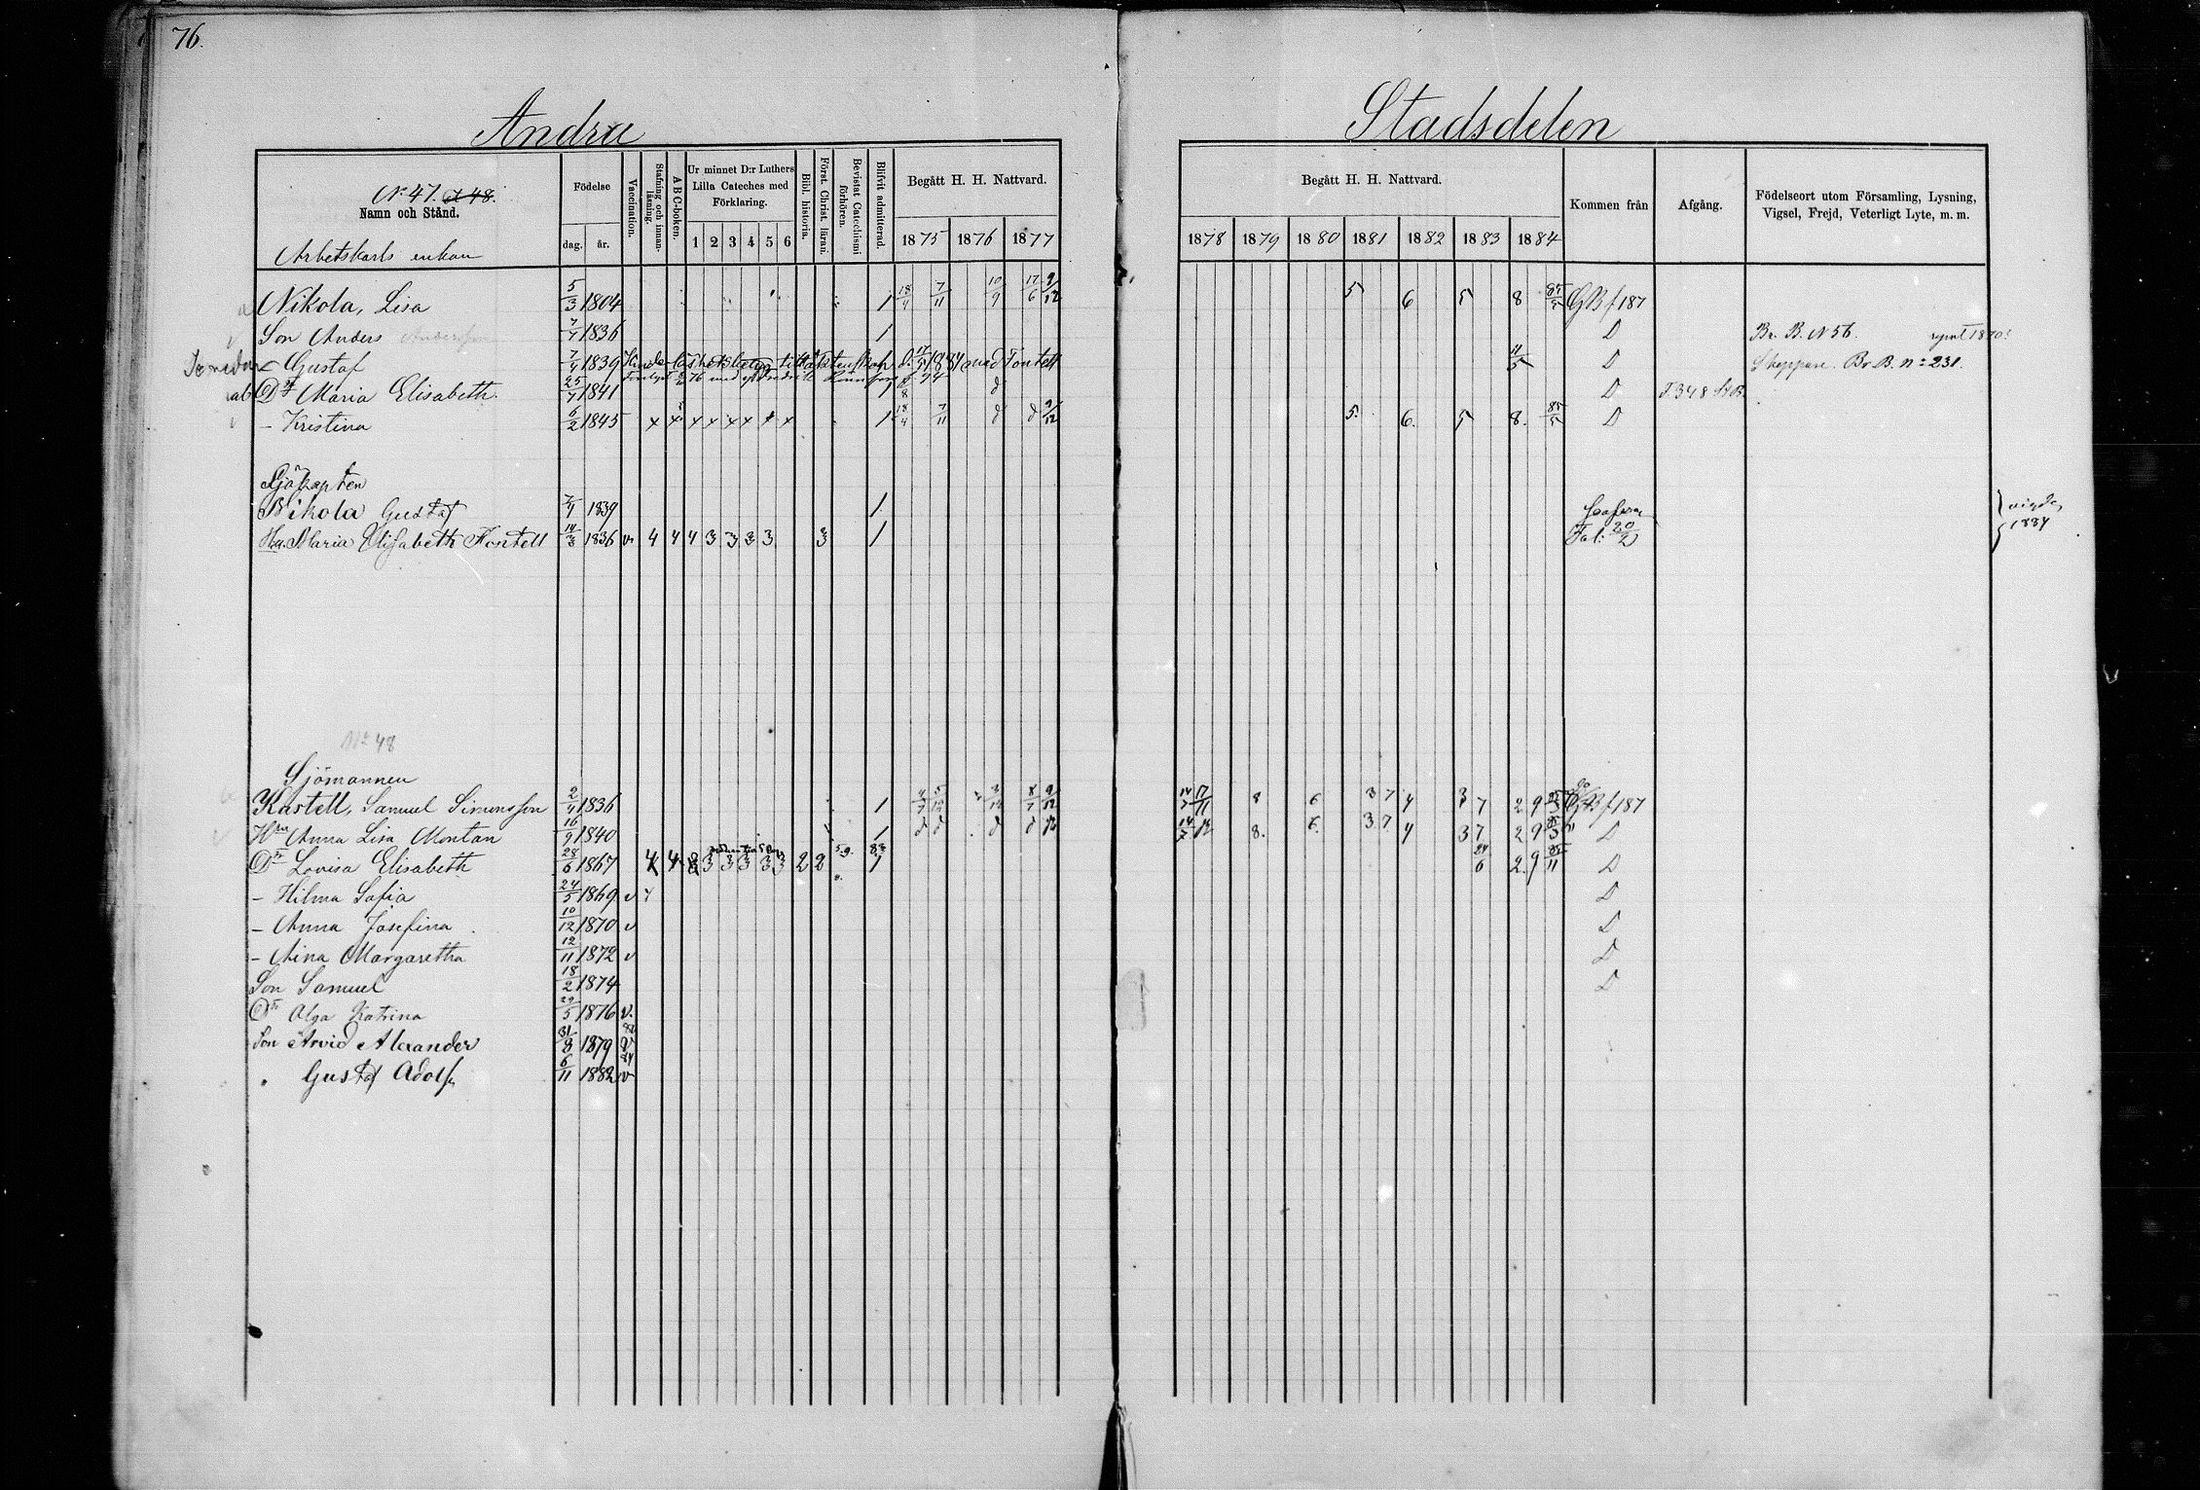 76.
Andra Stadsdelen
No 47. et 48.
Namn och Stånd.
Födelse
dag. år.
Vaccination.
Stafning och innan-läsning.
A B C-boken.
Ur minnet D:r Luthers Lilla Cateches med Förklaring.
1 2 3 4 5 6
Bibl. historia.
Först. Christ. läran.
Bevistat Catechismi förhören.
Blifvit admitterad.
Begått H. H. Nattvard.
1875 1876 1877
Begått H. H. Nattvard.
1878 1879 1880 1881 1882 1883 1884
Kommen från
Afgång.
Födelseort utom Församling, Lysning, Vigsel, Frejd, Veterligt Lyte, m. m.
Arbetskarls enkan
Nikola, Lisa 5/3 1804 1 18/4 7/11 10/9 17/6 9/12 5 6 5 8 85/5 GB f 187
Son Anders 7/4 1836 1 D Br. B. N 56.
– Gustaf 7/4 1839 11/5 D Skeppare. Br. B. n: 231.
Dr Maria Elisabeth. 25/7 1841 1 D
– Kristina 6/2 1845 x x x x x x x x 1 18/4 7/11 9/12 5. 6. 5 8. 85/5 D
Sjökapten
Nikola Gustaf 7/4 1839 1
Hu. Maria Elisabeth Fontell 14/3 1836 v 4 4 4 3 3 3 3 3 1 20/2
vigde, 1884
No 48
Sjömannen
Kastell, Samuel Simonsson 2/4 1836 1 8 6 3 7 4 3 7 2 9 GB f 187
Hu Anna Lisa Montan 16/9 1840 1 8. 6. 3 7 4 3 7 2 9 D
Dr Lovisa Elisabeth 28/6 1867 4 4 3 3 3 3 3 2 2 83 1 84/6 2. 9 85/11 D
– Hilma Sofia 24/5 1869 v D
– Anna Josefina 10/12 1870 v D
– Aina Margaretha 12/11 1872 v D
Son Samuel 18/2 1874 D
Dr Olga Katrina 29/5 1876 v.
Son Arvid Alexander 31/8 1879 v
" Gustaf Adolf 6/11 1882 v